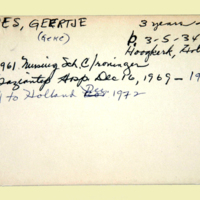 ES, GEERTJE
(KEKE)
3 years
b. 3-5-34
Hoogkerk, Hol
1961 Nursing Sch. Groningen
Hosp Dec 16, 1969 - 19
to Holland Dec 1972